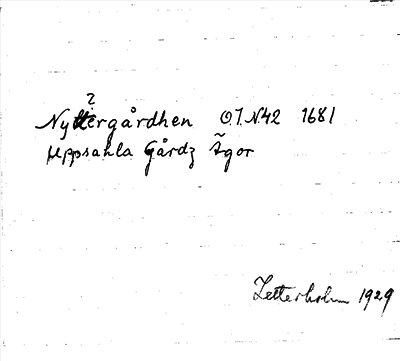 ?
Nyttergårdhen O7. N42 1681
Uppsahla Gårdz Ägor
Zetterholm 1929